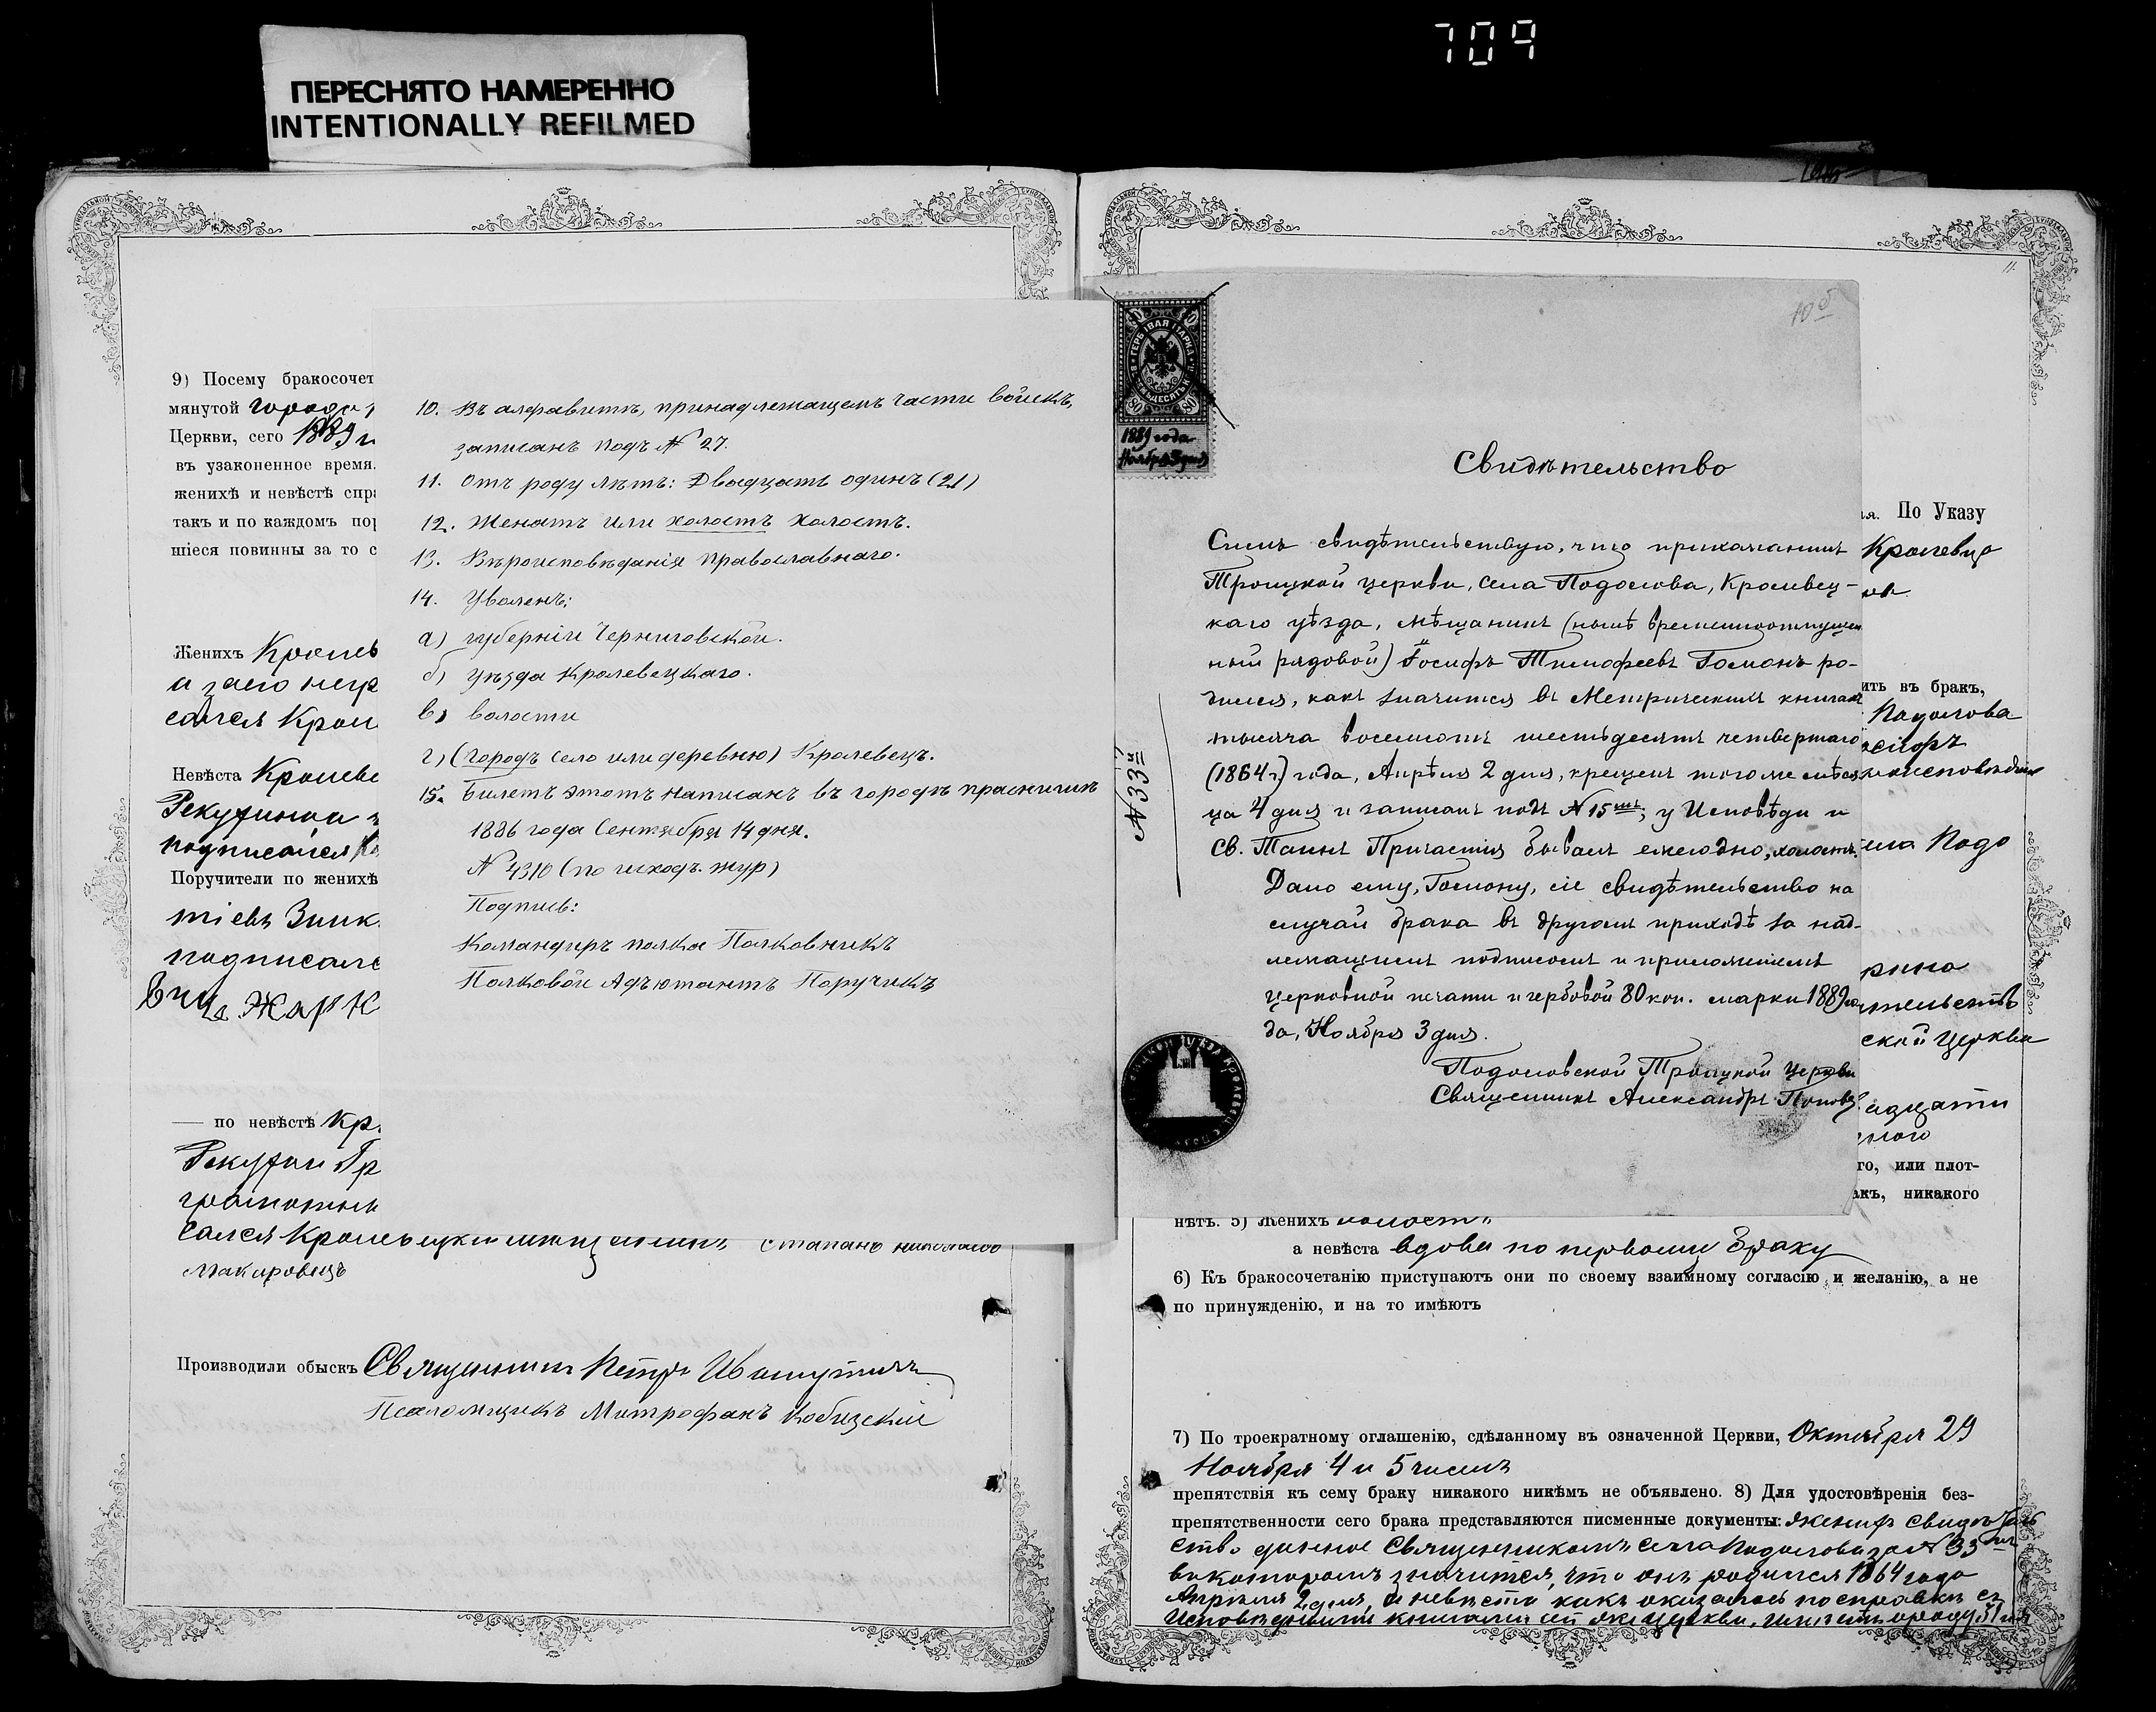 709
ПЕРЕСНЯТО НАМЕРЕННО
INTENTIONALLY REFILMED
9) Посему бракосочет
мянутой города
Церкви, сего 1889 г
въ узаконенное время.
женихѣ и невѣстѣ спра
такъ и по каждомъ пор
шіеся повинны за то с
Женихъ Кролев
а за его негр
сался Крол
Невѣста Кролеве
подписался
Поручители по женихѣ
подписалс
— по невѣстѣ Кр.
грамотны
сался Кролевецкій мѣщанинъ Стапанъ
Макаровецъ
Производили обыскъ Священникъ Петръ Ивашутичъ
Псаломщикъ Митрофанъ Кобизскій
10. Въ алфавитѣ, принадлежащемъ части войскъ,
записанъ подъ № 27.
11. Отъ роду лѣтъ: Двадцать одинъ (21)
12. Женатъ или холостъ холостъ.
13. Вѣроисповѣданія Православнаго.
14. Уволенъ:
а) губерніи Черниговской.
б) уѣзда Кролевецкаго.
в) волости
г) (городъ село или деревню) Кролевецъ.
15. Билетъ этотъ написанъ въ городѣ праснишъ
1886 года Сентября 14 дня.
№ 4310 (по исход. жур)
Подпись:
Командиръ полка Полковникъ
Полковой Адъютантъ Поручикъ
10 б
ГЕРБОВАЯ МАРКА
80 80
1889 года
Ноября 3 дня
№ 33й
Свидѣтельство
Симъ свидѣтельствую, что прихожанинъ
Троицкой церкви, села Подолова, Кролевец-
каго уѣзда, мѣщанинъ (нынѣ временноотпущен
ный рядовой) Іосифъ Тимофеевъ Гомонъ ро-
дился, какъ значится въ Метрическихъ книгахъ
тысяча восемьсотъ шестьдесятъ четвертаго
(1864 г.) года, Апрѣля 2 дня, крещенъ того же мѣся
ца 4 дня и записанъ подъ № 15мъ; у Исповѣди и
Св. Таинъ Причастія бывалъ ежегодно, холостъ.
Дано ему, Гомону, сіе свидѣтельство на
случай брака въ другомъ приходѣ за над-
лежащимъ подписомъ и приложеніемъ
церковной печати и гербовой 80 коп. марки 1889 го
да, Ноября 3 дня.
Подоловской Троицкой Церкви
Священникъ Александръ Поповъ
11.
ія. По Указу
Кролевца
ить въ бракъ,
Подолова
осифъ
ела Подо
ской Церкви
го, или плот-
акъ, никакого
нѣтъ. 5) Женихъ холостъ
а невѣста вдова по первому браку
6) Къ бракосочетанію приступаютъ они по своему взаимному согласію и желанію, а не
по принужденію, и на то имѣютъ
7) По троекратному оглашенію, сдѣланному въ означенной Церкви, Октября 29
Ноября 4 и 5 чиселъ
препятствія къ сему браку никакого никѣмъ не объявлено. 8) Для удостовѣренія без-
препятственности сего брака представляются писменные документы: Жених свидѣтель
ство данное Священникомъ села Подолова за № 33мъ
въ которомъ значится, что онъ родился 1864 года
Апрѣля 2 дня, а невѣста какъ оказалось по справкѣ съ
Исповѣдными книгами сей же церкви, имѣетъ отроду